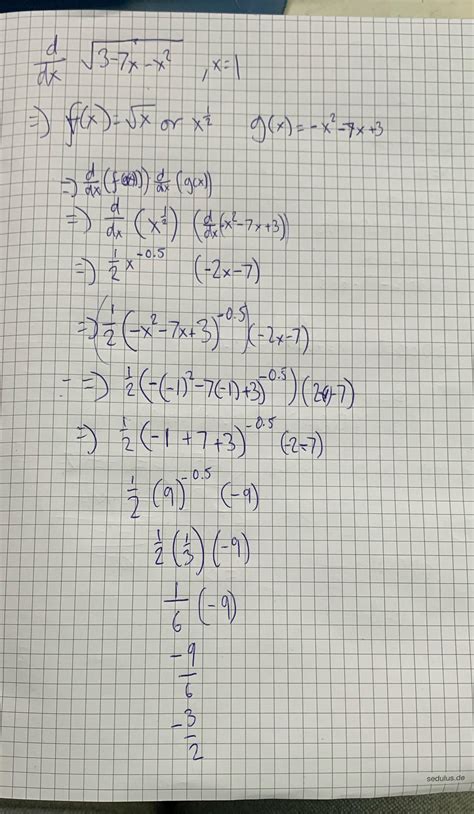 d/dx √(3-7x-x²) , x=1
=) f(x)=√x or x^(1/2) g(x)=-x²-7x+3
=) d/dx (f(x)) d/dx (g(x))
=) d/dx (x^(1/2)) (d/dx(-x²-7x+3))
=) 1/2 x^(-0.5) (-2x-7)
=) (1/2 (-x²-7x+3)^(-0.5)) (-2x-7)
- =) 1/2 (-(-1)²-7(-1)+3)^(-0.5)) (-7)
=) 1/2 (-1+7+3)^(-0.5) (-2-7)
1/2 (9)^(-0.5) (-9)
1/2 (1/3) (-9)
1/6 (-9)
-9/6
-3/2
sedulus.de